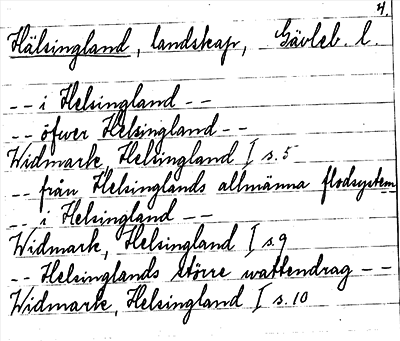 4.
Hälsingland, landskap, Gävleb. l.
-- i Helsingland --
-- öfwer Helsingland --
Widmark, Helsingland I s. 5
-- från Helsinglands allmänna flodsystem
-- i Helsingland --
Widmark, Helsingland I s. 9
-- Helsinglands större wattendrag --
Widmark, Helsingland I s. 10